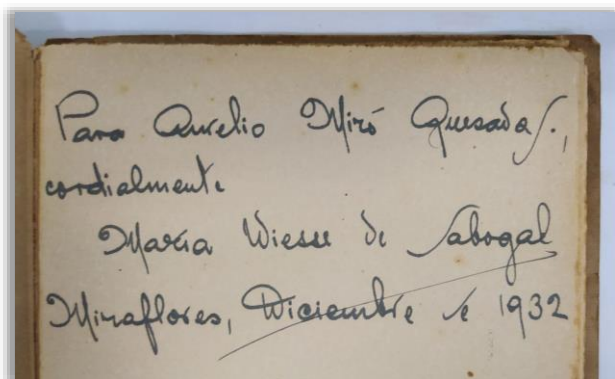 Para Aurelio Miró Quesada S.,
cordialmente
María Wiesse de Sabogal
Miraflores, Diciembre de 1932